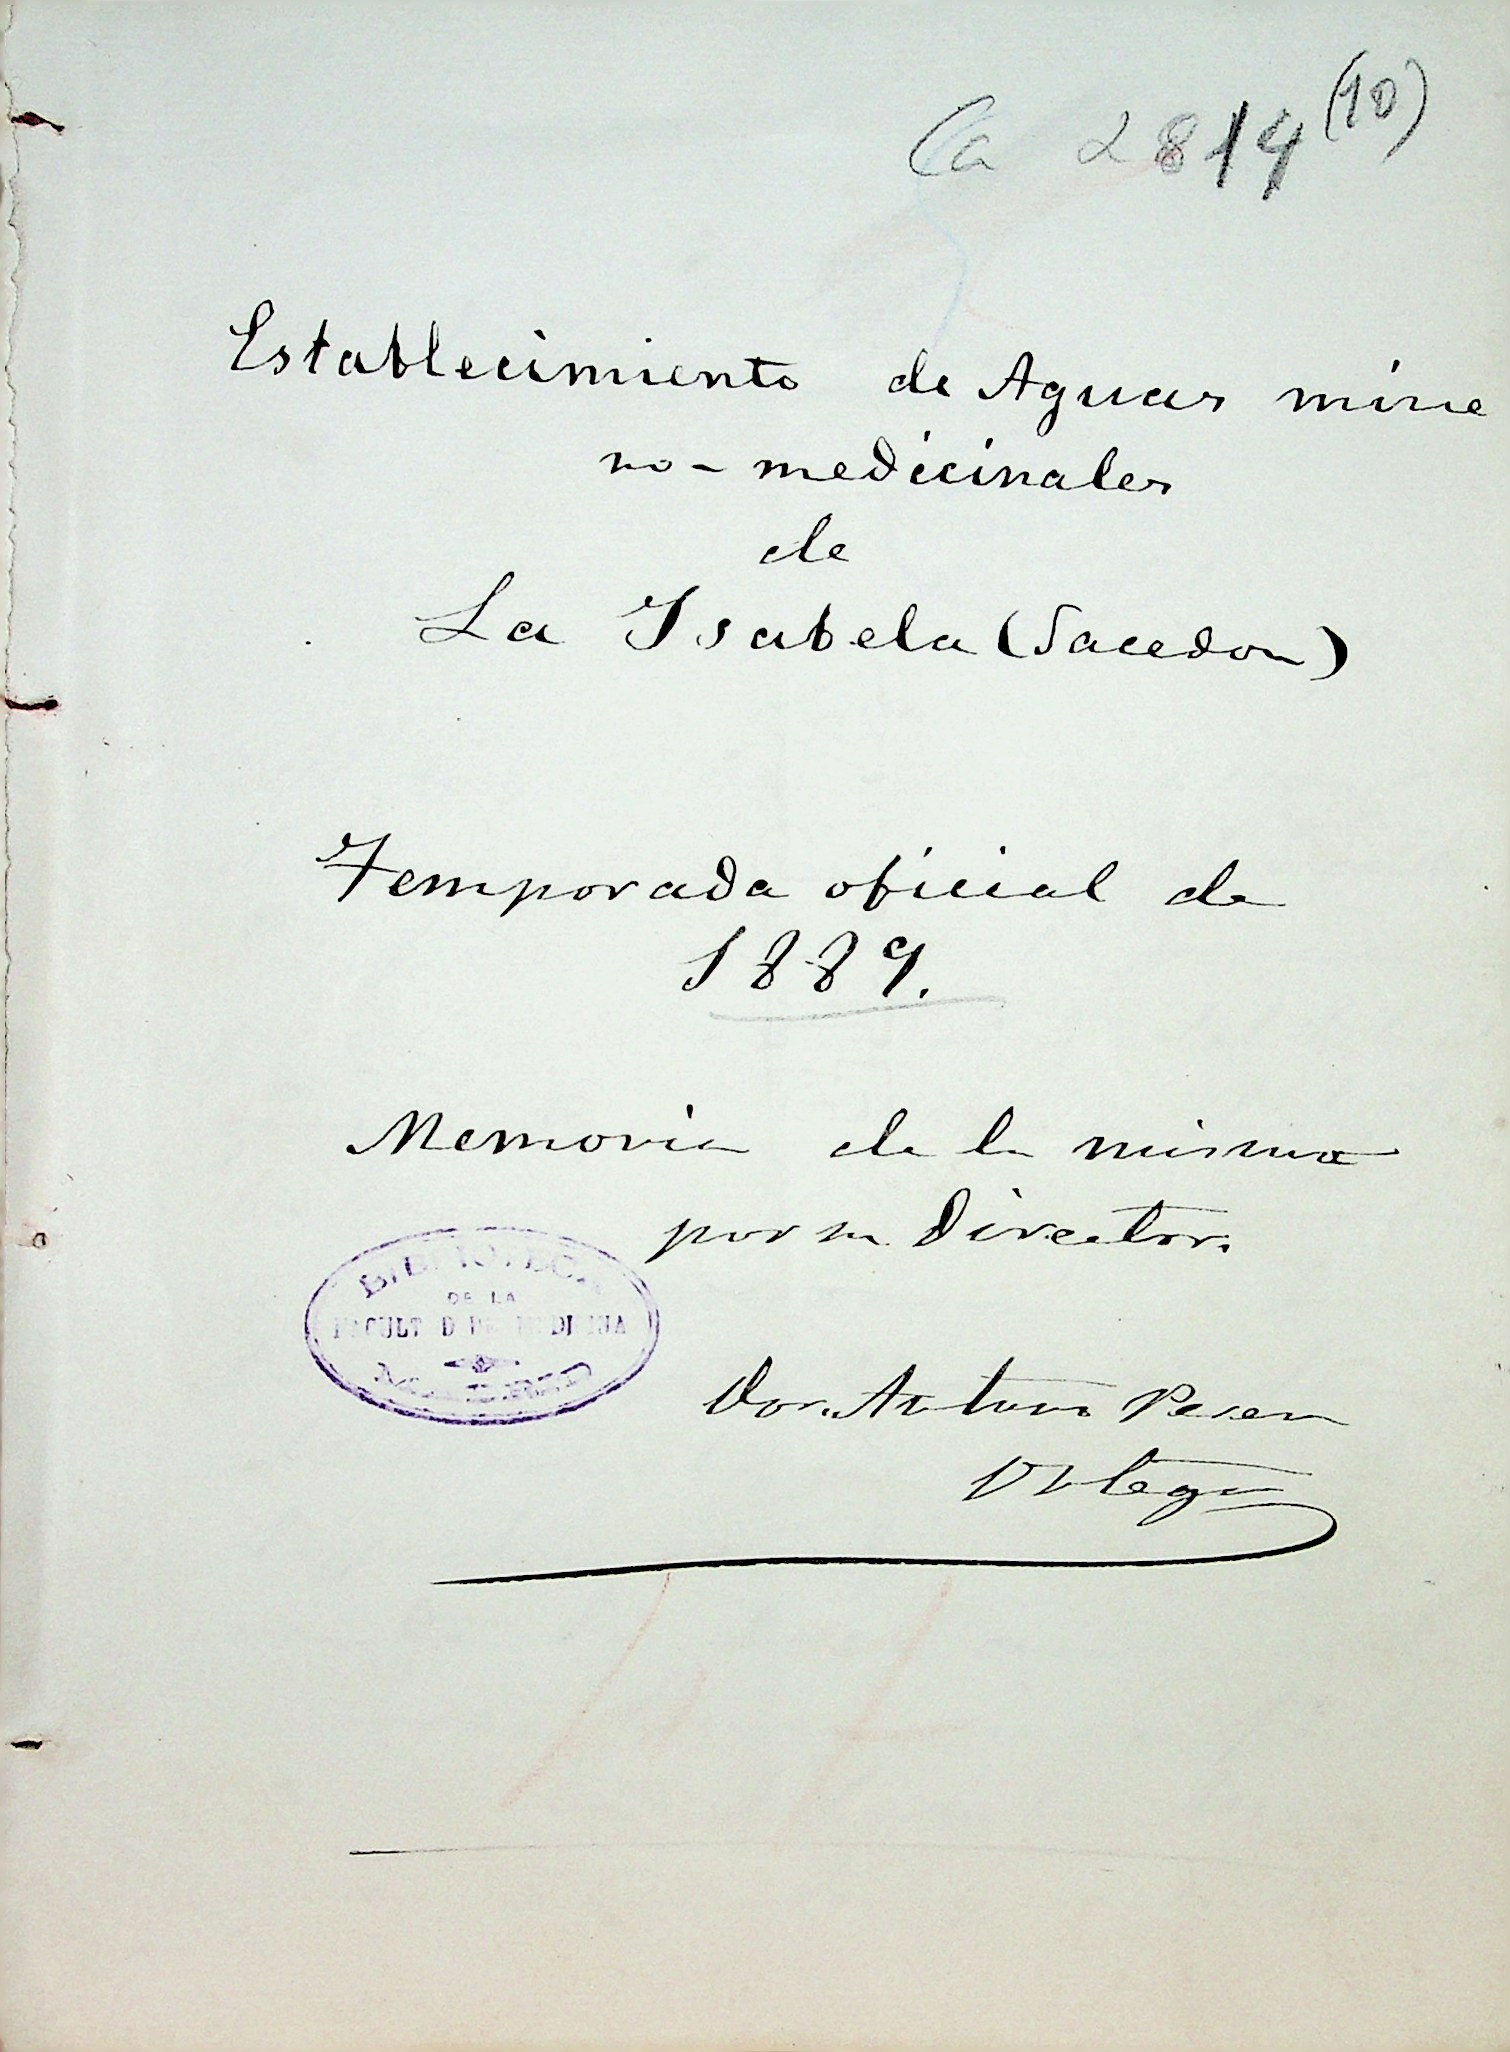 Ca 2814 (10)
Establecimiento de Aguas mine
ro-medicinales
de
La Isabela (Sacedon)
Temporada oficial de
1889.
Memoria de la misma
por su Director.
BIBLIOTECA
DE LA
FACULTAD DE MEDICINA
Dor. Arturo Perera
Ortega